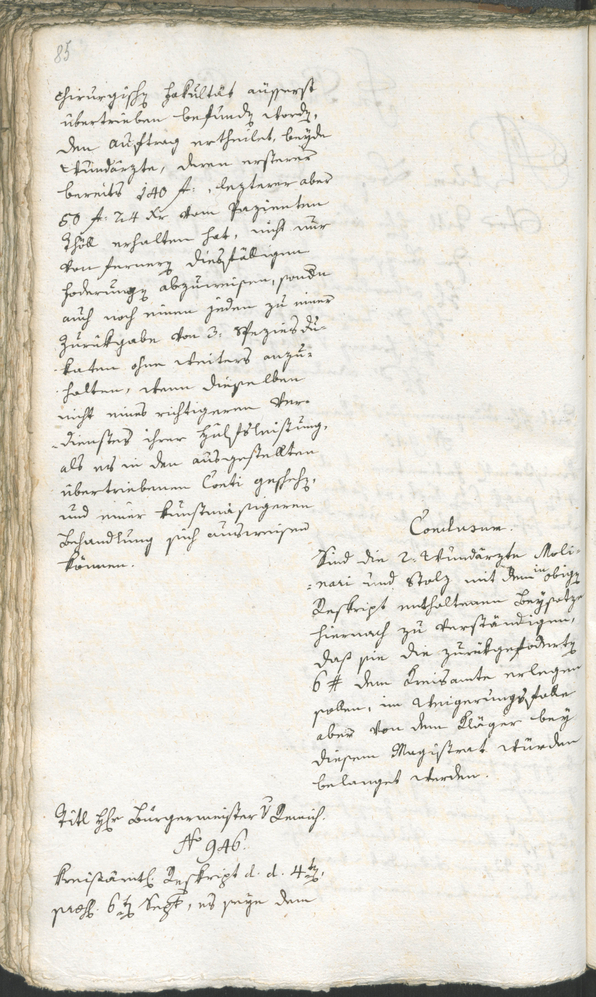 85
chirurgischen Fakultät äusserst
übertrieben befunden worden,
den Auftrag ertheilet, beyde
Wundärzte, deren ersterer
bereits 140 f:, lezterer aber
50 f: 24 Xr vom Pazienten
Thöll erhalten hat, nicht nur
von fernern diesfälligen
Foderungen abzuweisen, sondern
auch noch einen jeden zu einer
Zurükgabe von 3. Spezies du-
katen ohne weiters anzu-
halten, wenn dieselben
nicht eines richtigeren Ver-
dienstes ihrer Hülfsleistung,
als es in den ausgestellten
übertriebenen Conti geschehen,
und einer kunstmäßigeren
Behandlung sich ausweisen
können.
Conclusum.
Sind die 2. Wundärzte Moli-
nari und Stolz mit dem in obigen
Reskript enthaltenen Beysatze
hiernach zu verständigen,
daß sie die zurükgefoderten
6 # dem Kreisamte erlegen
sollen, im Weigerungsfalle
aber von dem Kläger bey
diesem Magistrat würden
belanget werden.
Titl Hr Bürgermeister V
No 946.
Kreisämtl. Reskript d. d. 4ten,
praes. 6ten Sept, es seye dem